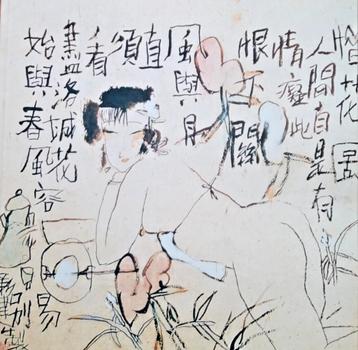 花
人間自是有
情癡此
恨不關
風與月
直
須
看
盡洛城花
始與春風容
易别
製